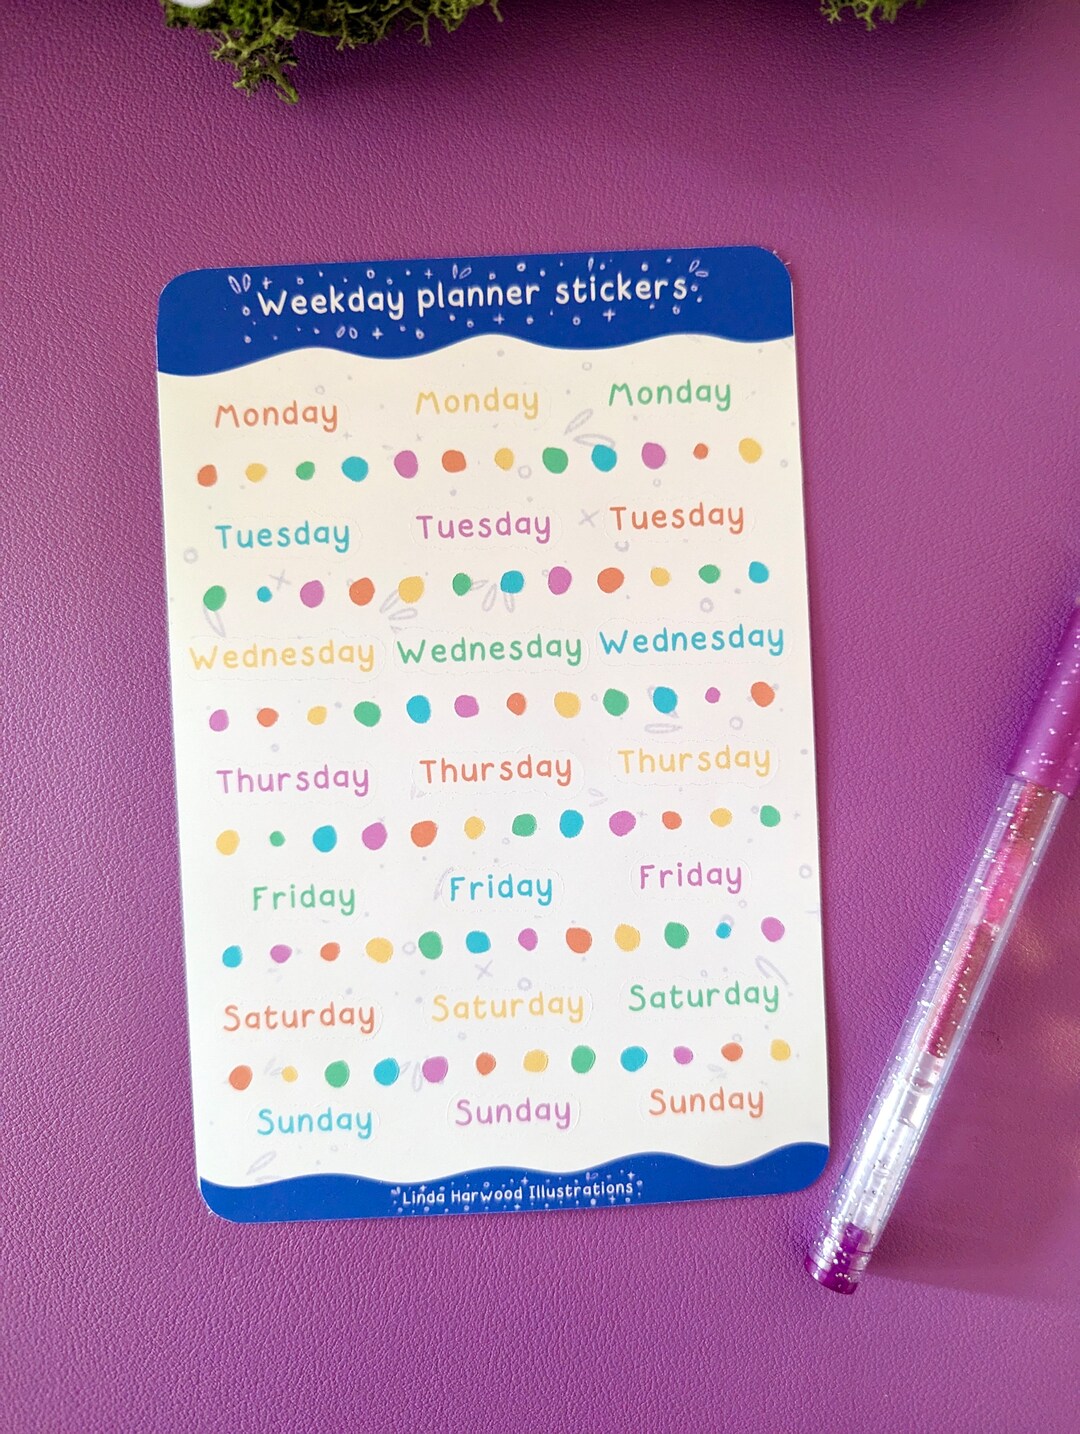 Weekday planner stickers
Monday Monday Monday
Tuesday Tuesday Tuesday
Wednesday Wednesday Wednesday
Thursday Thursday Thursday
Friday Friday Friday
Saturday Saturday Saturday
Sunday Sunday Sunday
Linda Harwood Illustrations